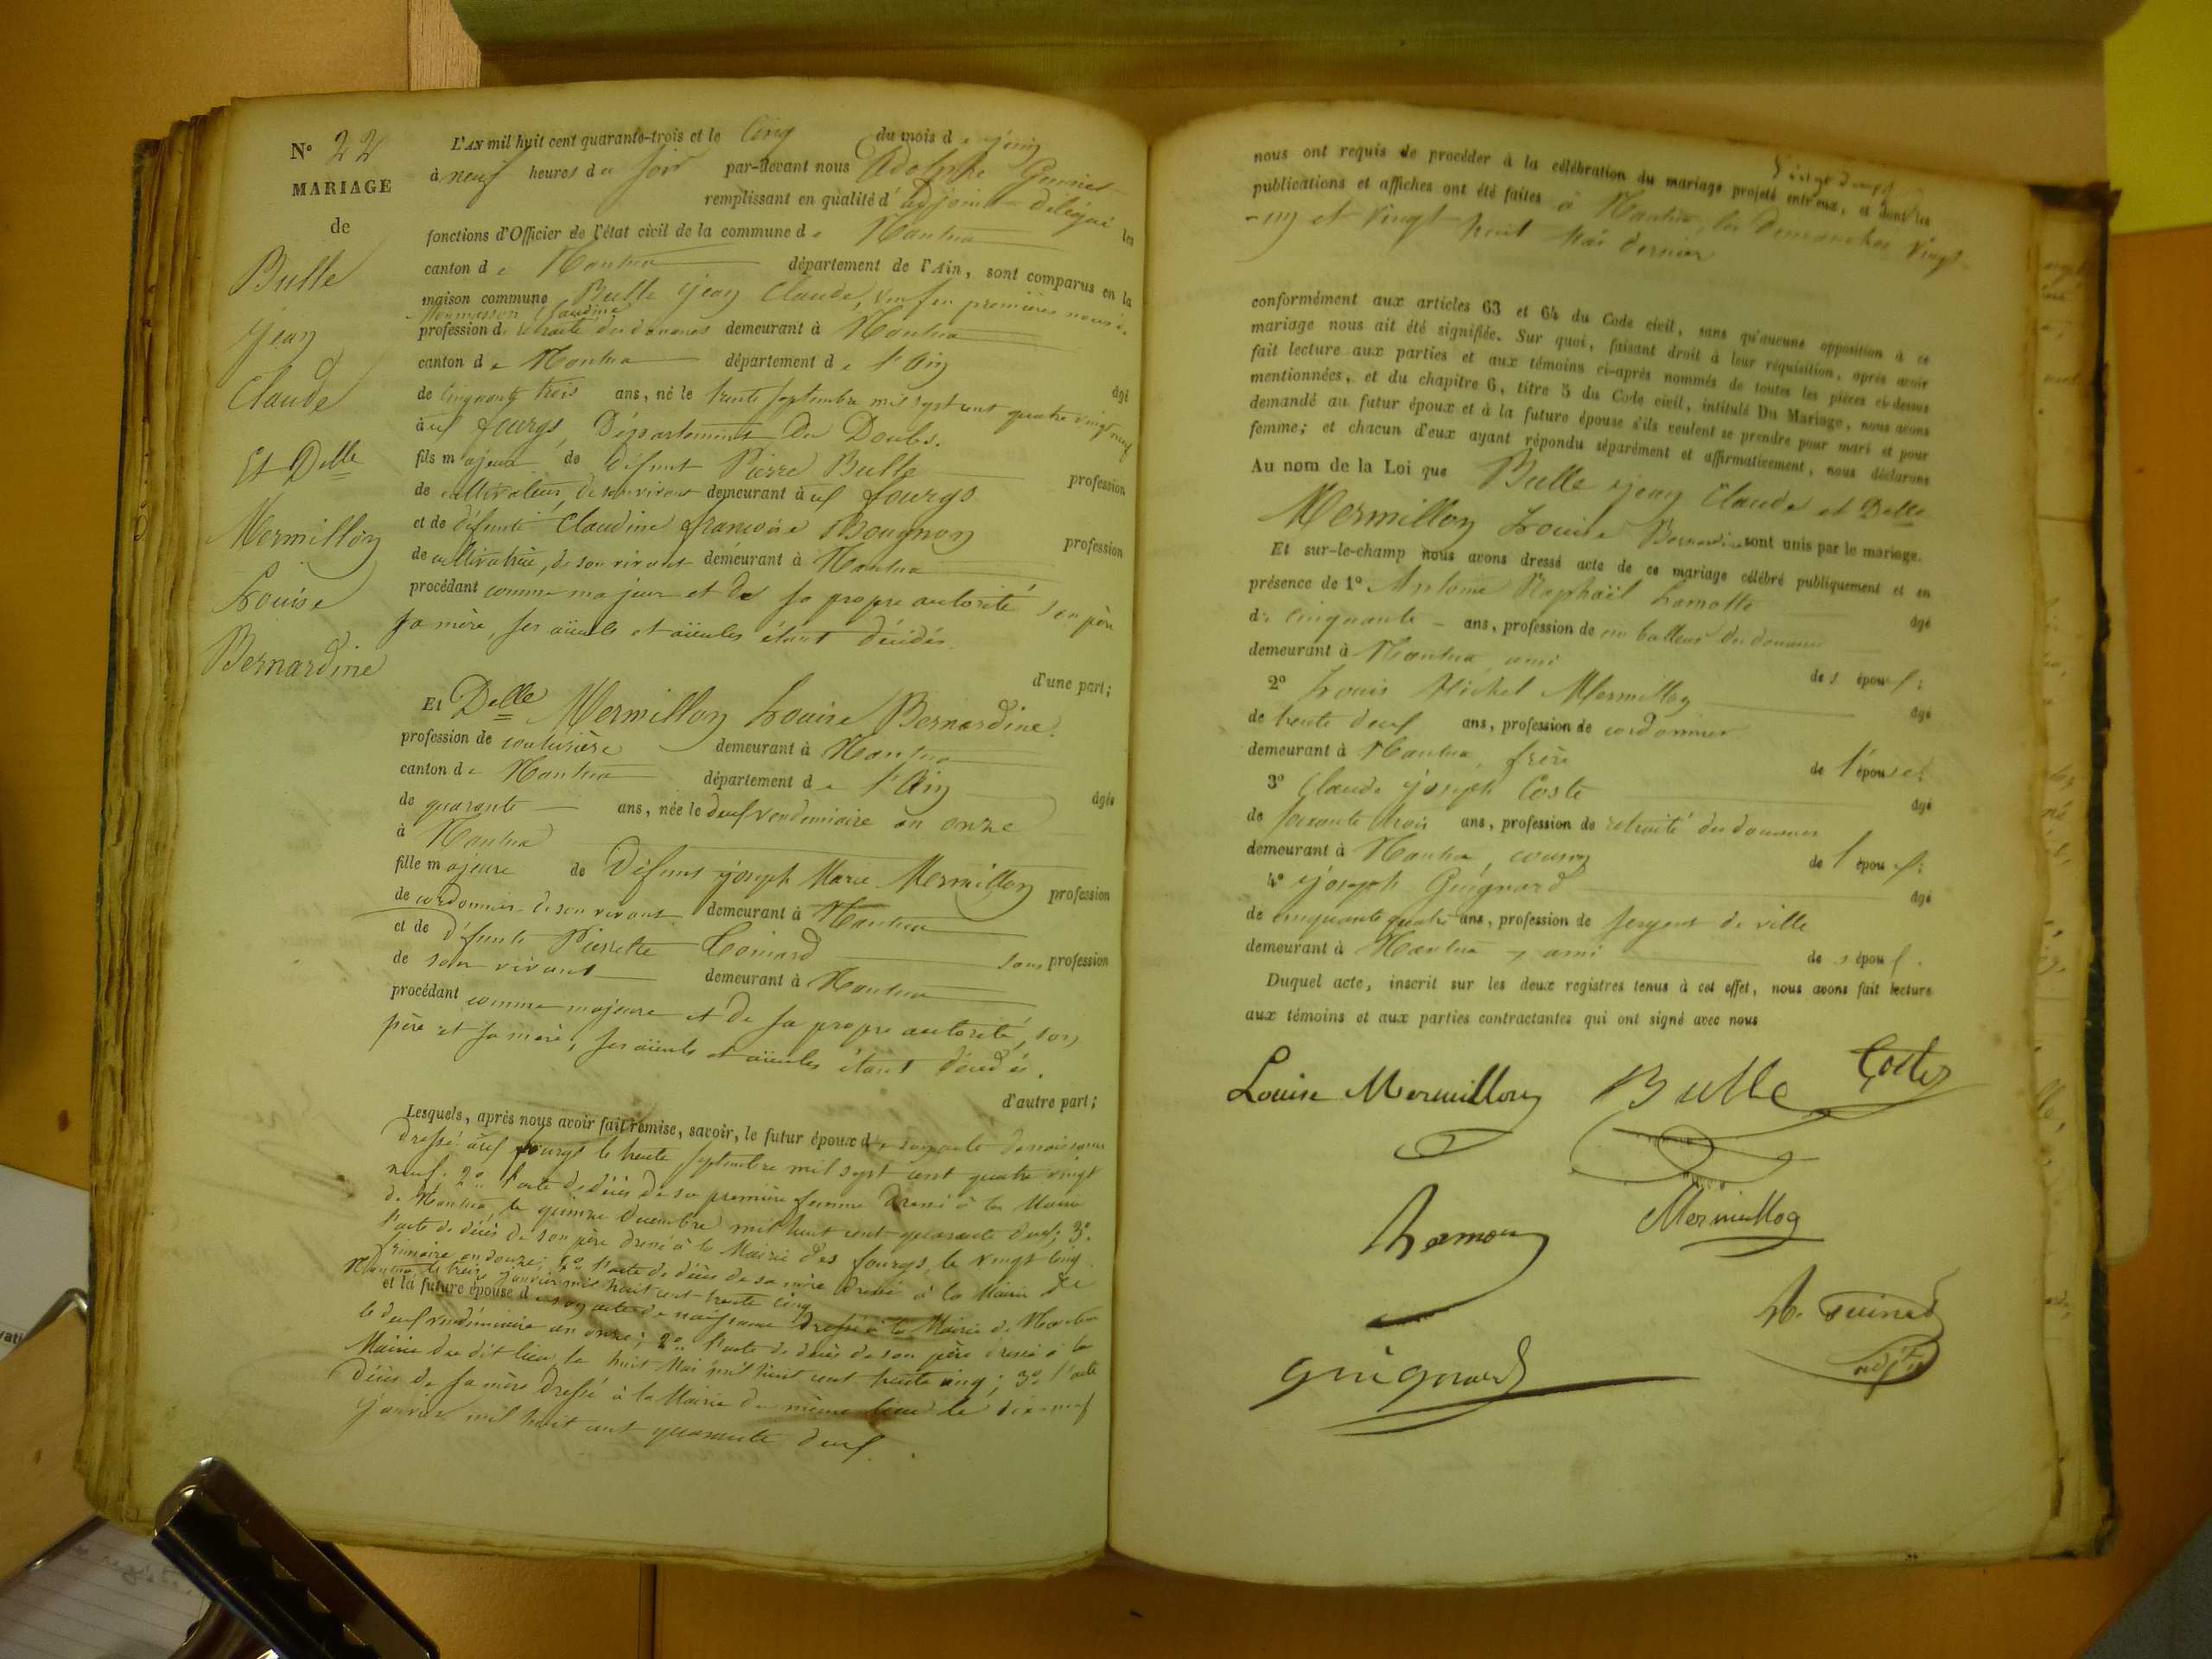 N° 22
MARIAGE
de
Bulle
Jean
Claude
Et Delle
Mermillon
Louise
Bernardine
L'AN mil huit cent quarante-trois et le cinq du mois de juin
à neuf heures du soir par-devant nous Adolphe
remplissant en qualité d'adjoint délégué les
fonctions d'Officier de l'état civil de la commune de Nantua
canton de Nantua département de l'Ain, sont comparus en la
maison commune Bulle Jean Claude, veuf en premières noces de
Claudine
profession de retraité des douanes demeurant à Nantua
canton de Nantua département de l'Ain âgé
de cinquante trois ans, né le trente septembre mil sept cent quatre vingt neuf
aux fourgs, Département du Doubs.
fils majeur de défunt Pierre Bulle profession
de cultivateur, de son vivant demeurant aux fourgs
et de défunte Claudine françoise profession
de cultivatrice, de son vivant demeurant à Nantua
procédant comme majeur et de sa propre autorité son père
sa mère, ses aïeuls et aïeules étant décédés.
d'une part;
Et Delle Mermillon Louise Bernardine.
profession de couturière demeurant à Nantua
canton de Nantua département de l'Ain âgée
de quarante ans, née le deux vendémiaire an onze
à Nantua
fille majeure de Défunt joseph Marie Mermillon profession
de cordonnier de son vivant demeurant à Nantua
et de défunte Pierrette sans profession
de son vivant demeurant à Nantua
procédant comme majeure et de sa propre autorité, son
père et sa mère, ses aïeuls et aïeules étant décédés.
d'autre part;
Lesquels, après nous avoir fait remise, savoir, le futur époux de son acte de naissance
dressé aux fourgs le trente septembre mil sept cent quatre vingt
neuf; 2° l'acte de décès de sa première femme dressé à la Mairie
de Nantua, le quinze Décembre mil huit cent quarante deux; 3°
l'acte de décès de son père dressé à la Mairie des fourgs, le vingt cinq
frimaire an douze; 4° l'acte de décès de sa mère dressé à la Mairie de
Nantua le treize janvier mil huit cent trente cinq
et la future épouse de son acte de naissance dressé à la Mairie de Nantua
le deux vendémiaire an onze; 2° l'acte de décès de son père dressé à la
Mairie du dit lieu, le huit Mai mil huit cent trente cinq; 3° l'acte
décès de sa mère dressé à la Mairie du même lieu le dix-neuf
janvier mil huit cent quarante deux.
nous ont requis de procéder à la célébration du mariage projeté entr'eux, et dont les
publications et affiches ont été faites à Nantua, les Dimanches vingt
-un et vingt huit Mai dernier
conformément aux articles 63 et 64 du Code civil, sans qu'aucune opposition à ce
mariage nous ait été signifiée. Sur quoi, faisant droit à leur réquisition, après avoir
fait lecture aux parties et aux témoins ci-après nommés de toutes les pièces ci-dessus
mentionnées, et du chapitre 6, titre 5 du Code civil, intitulé Du Mariage, nous avons
demandé au futur époux et à la future épouse s'ils veulent se prendre pour mari et pour
femme; et chacun d'eux ayant répondu séparément et affirmativement, nous déclarons
Au nom de la Loi que Bulle jean Claude et Delle
Mermillon Louise Bernardine sont unis par le mariage.
Et sur-le-champ nous avons dressé acte de ce mariage célébré publiquement et en
présence de 1° Antoine Raphaël Lamotte âgé
de cinquante ans, profession de emballeur des douanes
demeurant à Nantua, ami des époux;
2° Louis Michel Mermillon âgé
de trente deux ans, profession de cordonnier
demeurant à Nantua, frère de l'épouse;
3° Claude joseph Coste âgé
de soixante trois ans, profession de retraité des douanes
demeurant à Nantua, cousin de l'époux;
4° joseph Guignard âgé
de cinquante quatre ans, profession de sergent de ville
demeurant à Nantua, ami des époux.
Duquel acte, inscrit sur les deux registres tenus à cet effet, nous avons fait lecture
aux témoins et aux parties contractantes qui ont signé avec nous
Louise Mermillon Bulle Coste
Mermillon
guignard
adjt